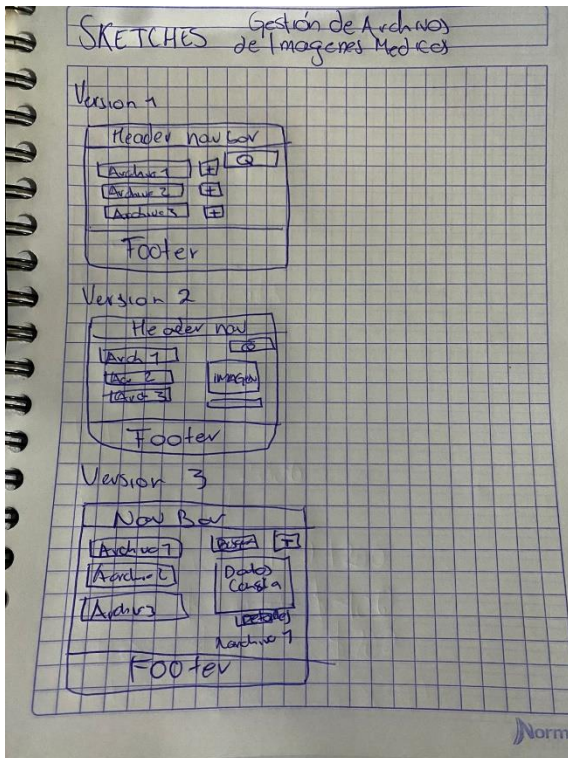 SKETCHES Gestión de Archivos
de Imagenes Medicos
Version 1
Header nav bar
Q
Archivo 1 +
Archivo 2 +
Archivo 3 +
Footer
Version 2
Header nav
Q
Arch 1
2
IMAGEN
Arc 3
Footer
Version 3
Nav Bar
Archivo 1 +
Archivo 2
Datos
Archivo 3
archivo 1
Footer
Norm